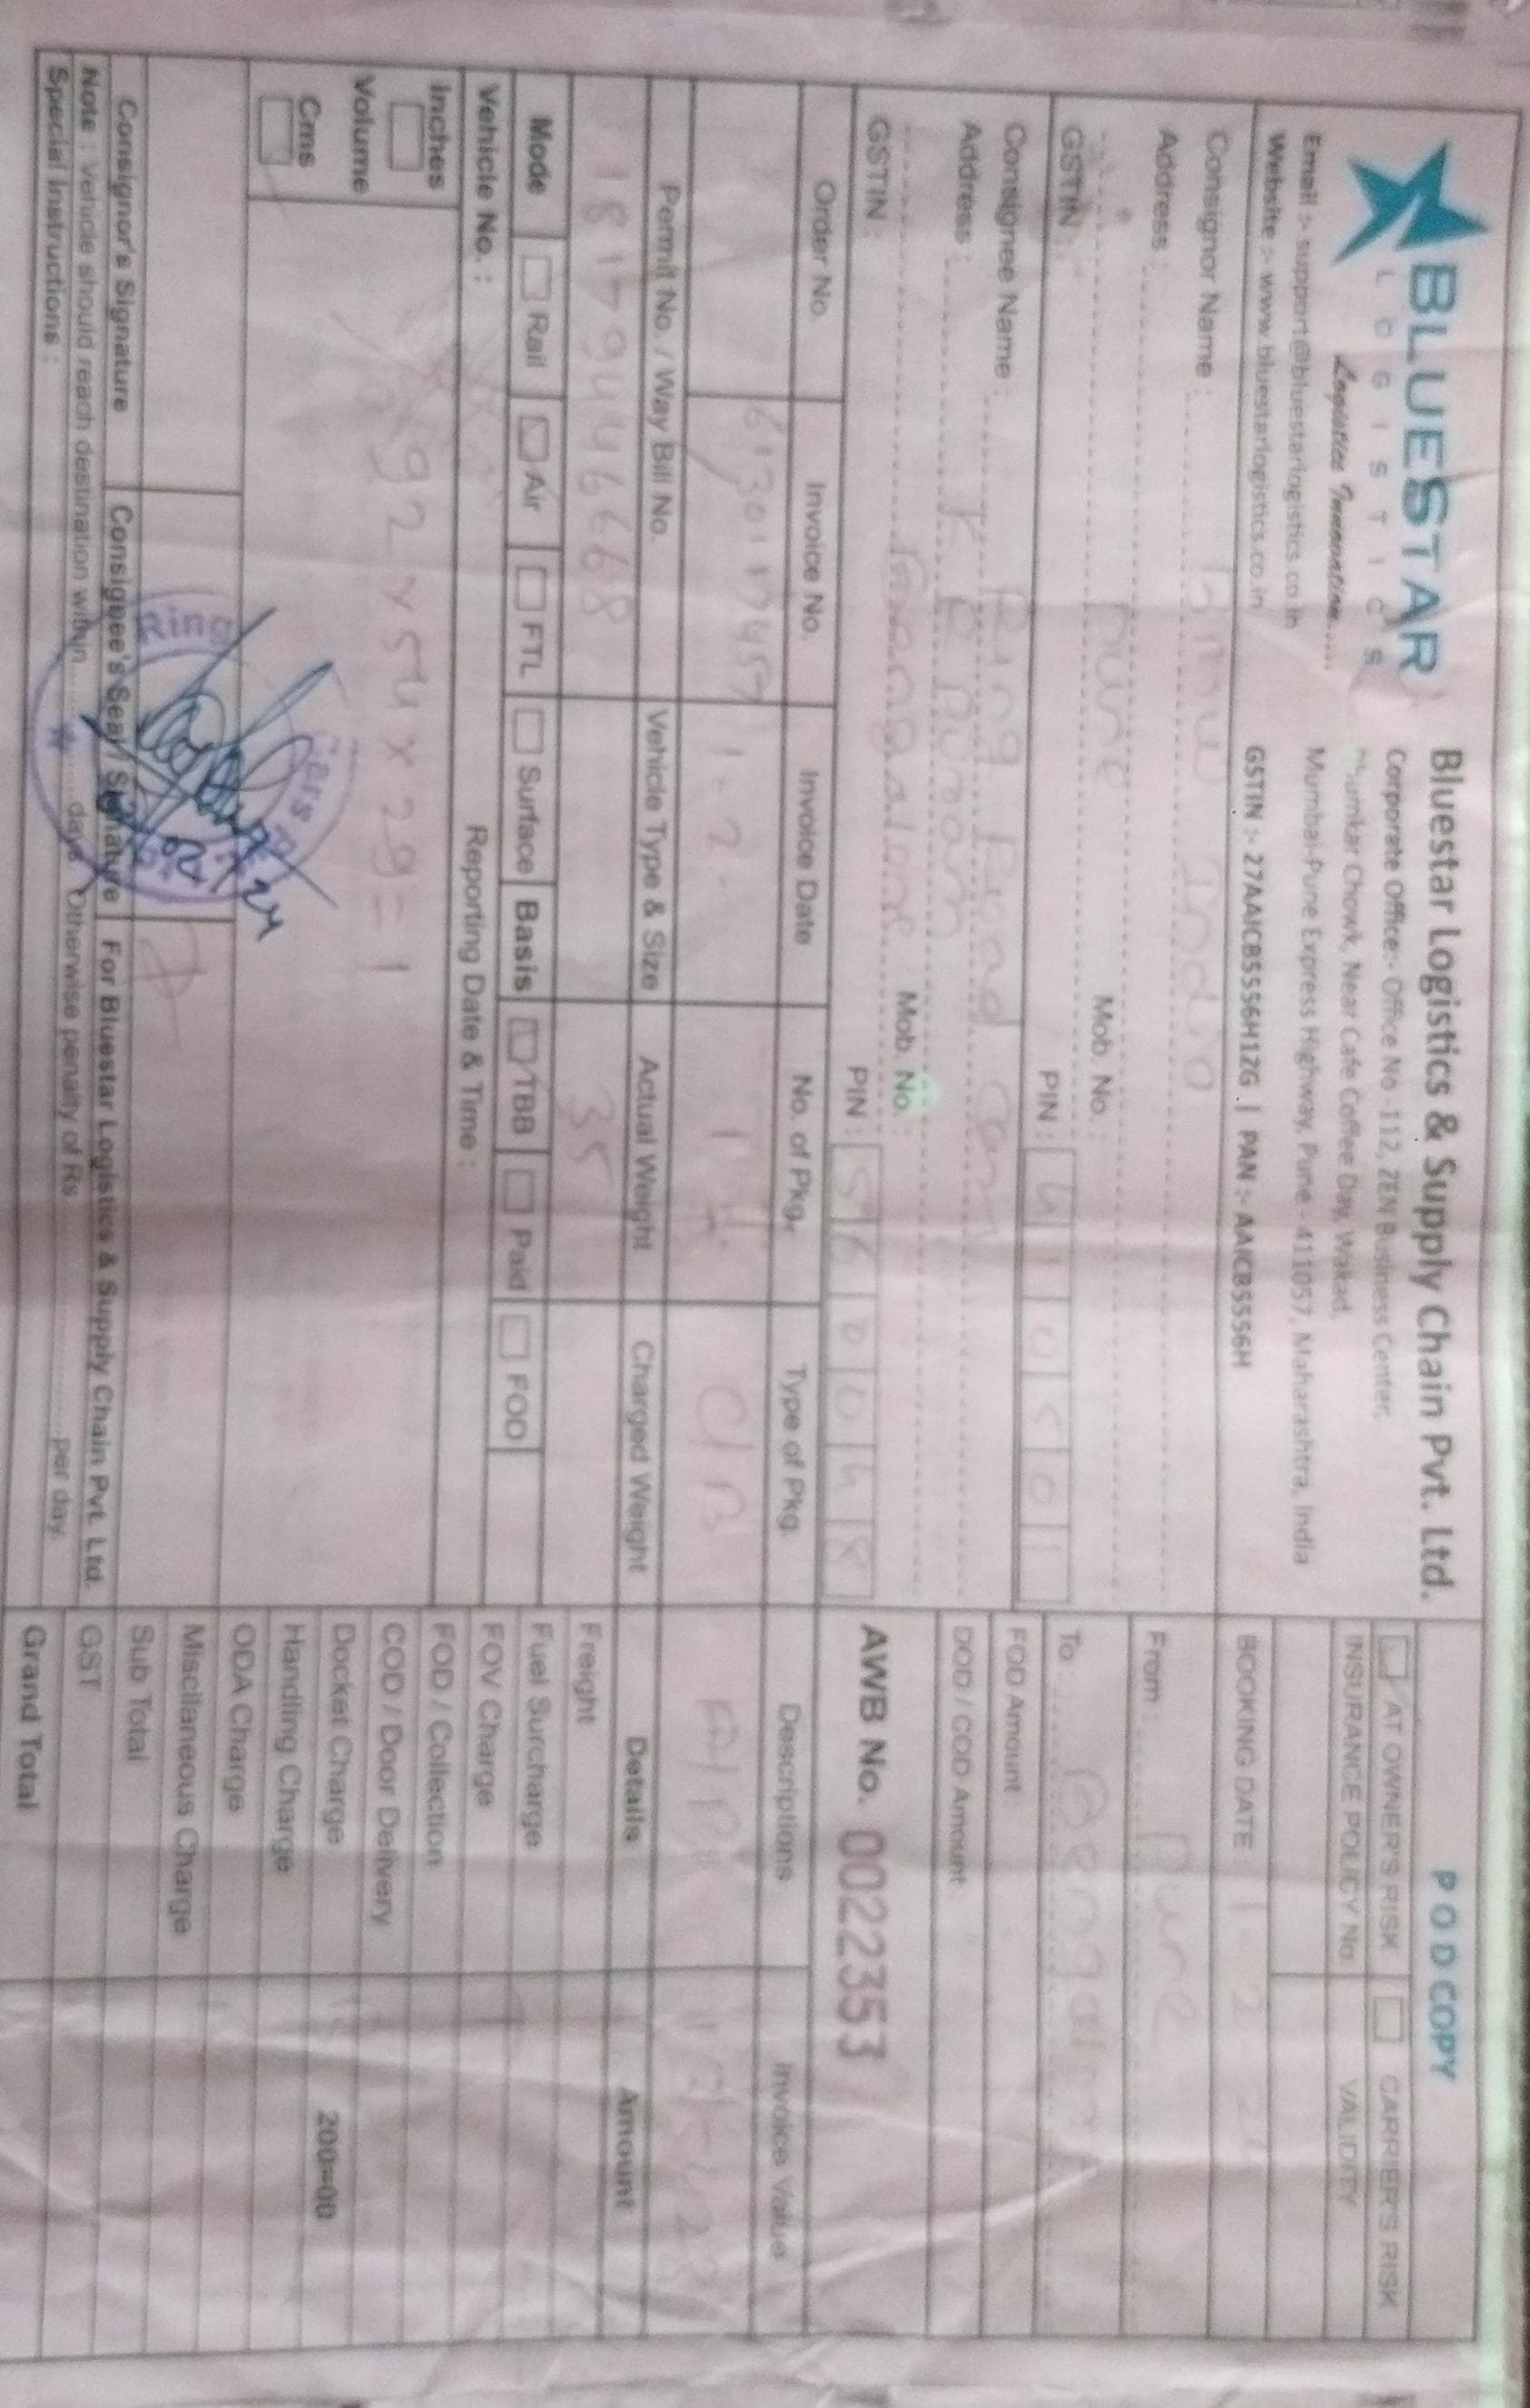 BLUESTAR
LOGISTICS
Logistics Innovation.....
Email :- support@bluestarlogistics.co.in
Website :- www.bluestarlogistics.co.in
Bluestar Logistics & Supply Chain Pvt. Ltd.
Corporate Office:- Office No -112, ZEN Business Center,
Chowk, Near Cafe Coffee Day, Wakad,
Mumbai-Pune Express Highway, Pune - 411057, Maharashtra, India
GSTIN :- 27AAICB5556H1ZG | PAN :- AAICB5556H
POD COPY
AT OWNER'S RISK CARRIER'S RISK
INSURANCE POLICY No. VALIDITY
BOOKING DATE : 1 - 2
From : Pune
To : Bengalore
FOD Amount :
DOD / COD Amount :
AWB No. 0022353
Consignor Name : Bmw India
Address :
Pune Mob. No. :
GSTIN : PIN : 410501
Consignee Name : Ring Road
Address : Puram
Bengalore Mob. No. :
GSTIN : PIN : 560048
Order No. Invoice No. Invoice Date No. of Pkg. Type of Pkg. Descriptions Invoice Value
6130117457 1-2- 1 C/B
Permit No. / Way Bill No. Vehicle Type & Size Actual Weight Charged Weight
18179446668 35
Mode Rail Air FTL Surface Basis TBB Paid FOD
Vehicle No. : Reporting Date & Time :
Inches
Volume
Cms
92 x 54 x 29 = 1
Details Amount
Freight
Fuel Surcharge
FOV Charge
FOD / Collection
COD / Door Delivery
Docket Charge 200=00
Handling Charge
ODA Charge
Miscllaneous Charge
Sub Total
GST
Grand Total
Ring
Consignor's Signature Consignee's Seal / Signature For Bluestar Logistics & Supply Chain Pvt. Ltd.
Note : Vehicle should reach destination within days. Otherwise penalty of Rs. per day.
Special Instructions :